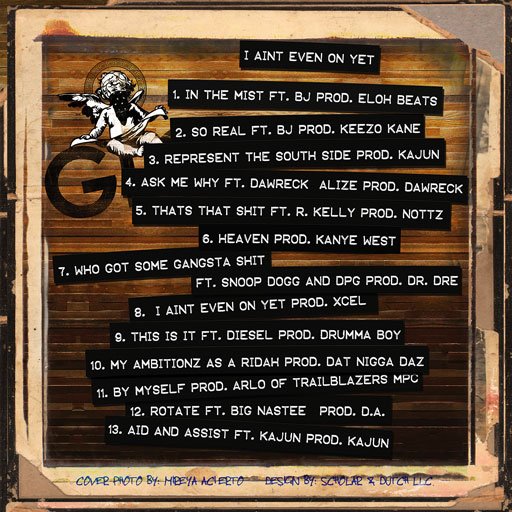 I AINT EVEN ON YET
1. IN THE MIST FT. BJ PROD. ELOH BEATS
2. SO REAL FT. BJ PROD. KEEZO KANE
3. REPRESENT THE SOUTH SIDE PROD. KAJUN
G
4. ASK ME WHY FT. DAWRECK ALIZE PROD. DAWRECK
5. THATS THAT SHIT FT. R. KELLY PROD. NOTTZ
6. HEAVEN PROD. KANYE WEST
7. WHO GOT SOME GANGSTA SHIT
FT. SNOOP DOGG AND DPG PROD. DR. DRE
8. I AINT EVEN ON YET PROD. XCEL
9. THIS IS IT FT. DIESEL PROD. DRUMMA BOY
10. MY AMBITIONZ AS A RIDAH PROD. DAT NIGGA DAZ
11. BY MYSELF PROD. ARLO OF TRAILBLAZERS MPC
12. ROTATE FT. BIG NASTEE PROD. D.A.
13. AID AND ASSIST FT. KAJUN PROD. KAJUN
COVER PHOTO BY: MIREYA ACIERTO DESIGN BY: SCHOLAR & DUTCH LLC.